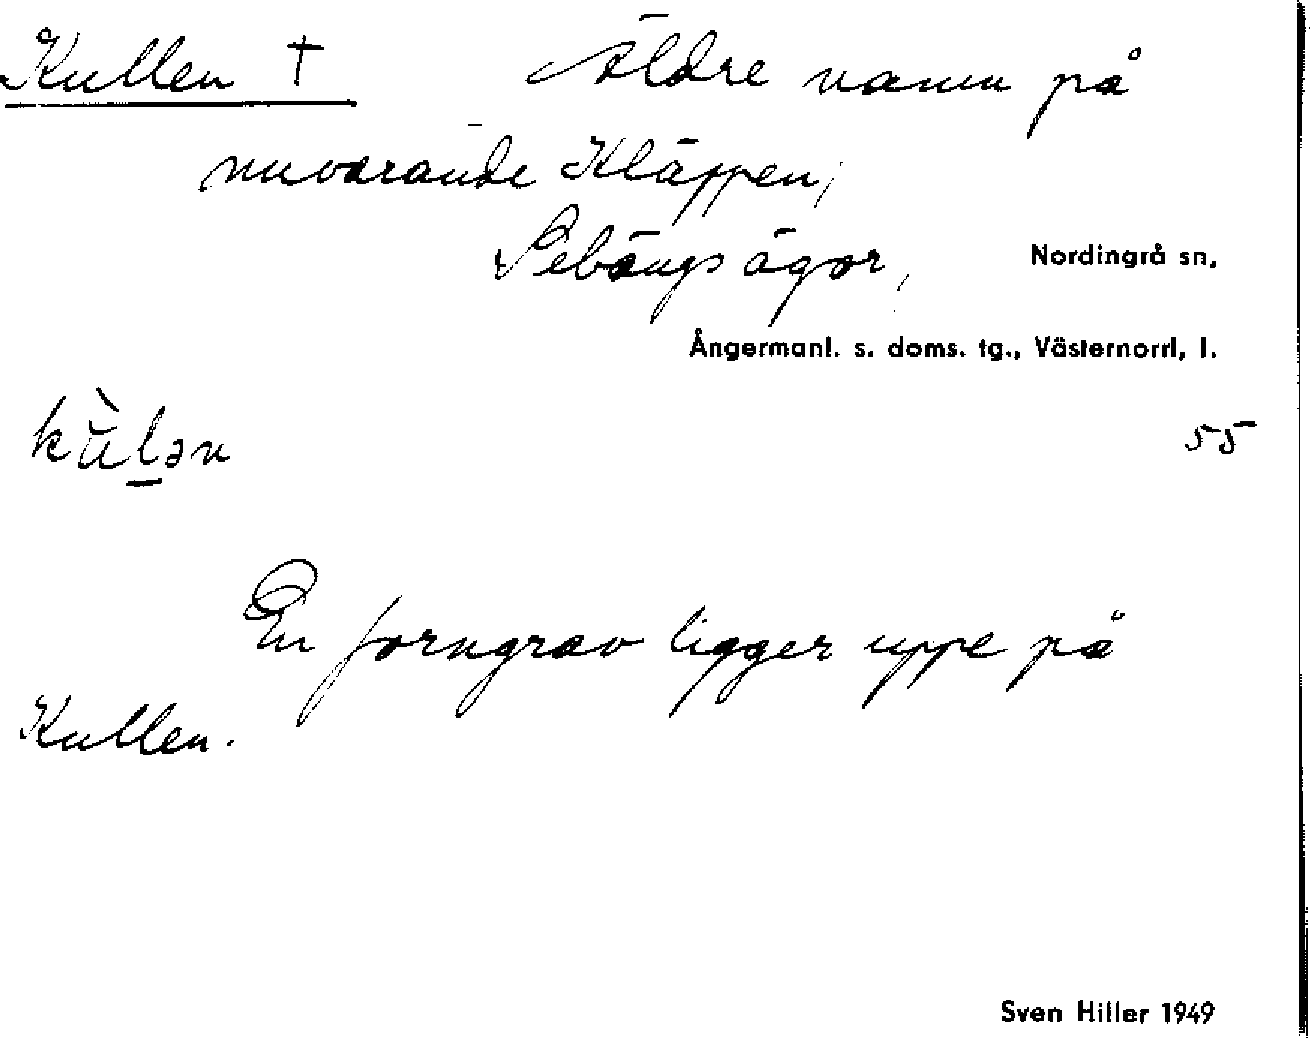 Kullen † Äldre namn på
nuvarande Kläppen,
Sebängs ägor, Nordingrå sn,
Ångermanl. s. doms. tg., Västernorrl, l.
kùlən 55
En forngrav ligger uppe på
Kullen.
Sven Hiller 1949